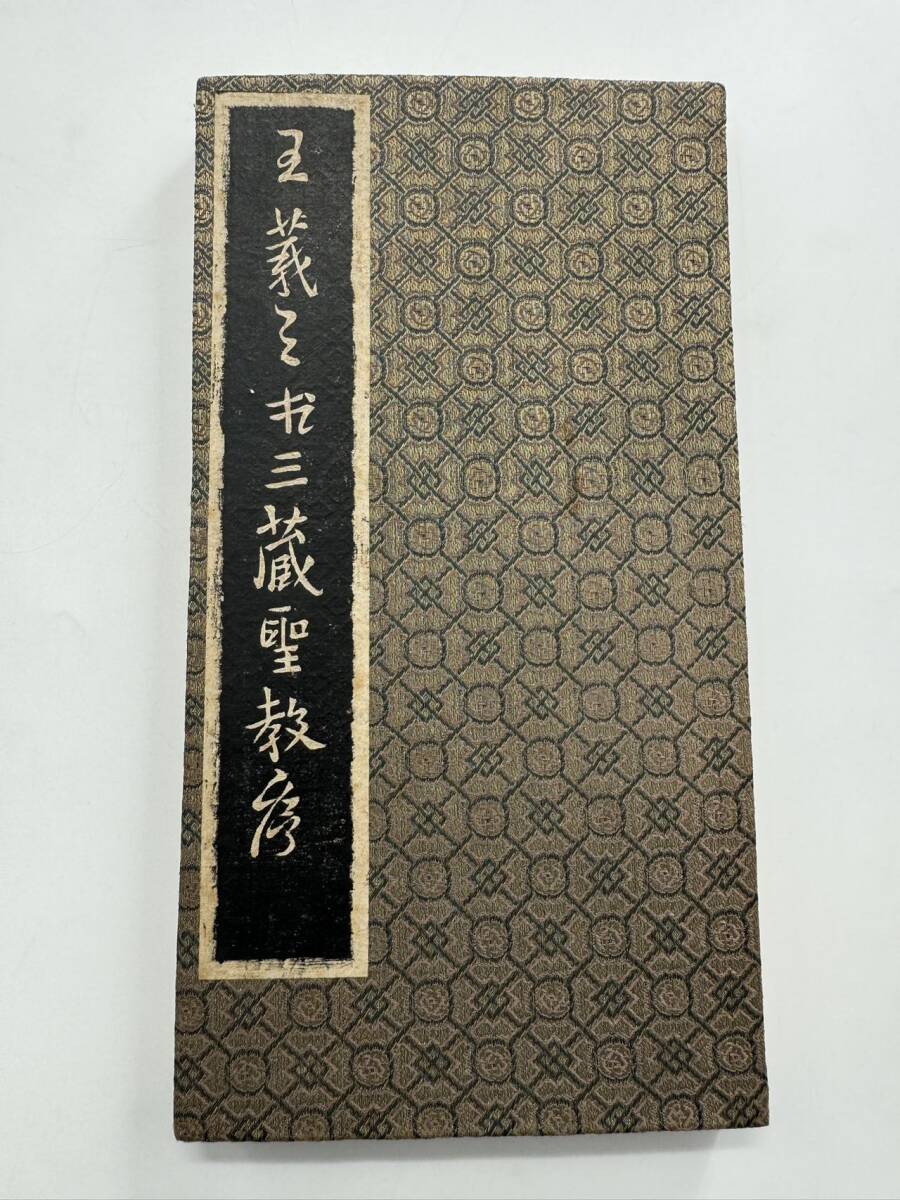 王羲之书三蔵聖教序